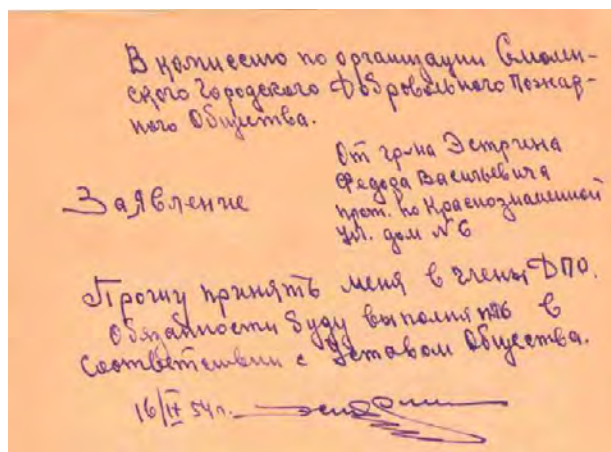 В комиссию по организации Смолен-
ского Городского Добровольного Пожар-
ного Общества.
От гр-на Эстрина
Федора Васильевича
прож. по Краснознаменной
ул. дом № 6
Заявление
Прошу принять меня в члены ДПО.
Обязанности буду выполнять в
соответствии с Уставом Общества.
16/IX 54 г.